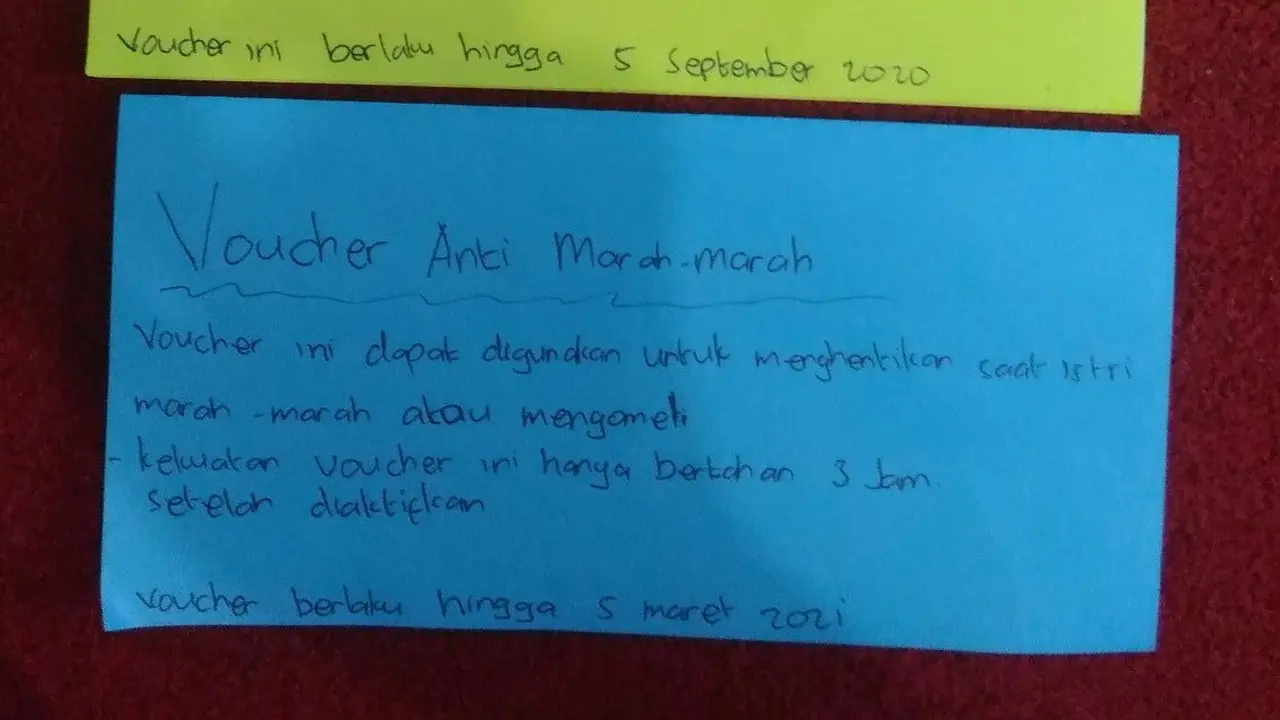 Voucher ini berlaku hingga 5 September 2020
Voucher Anti Marah-marah
Voucher ini dapat digunakan untuk menghentikan saat istri
marah-marah atau mengomeli
- kekuatan voucher ini hanya bertahan 3 Jam.
setelah diaktifkan
Voucher berlaku hingga 5 maret 2021